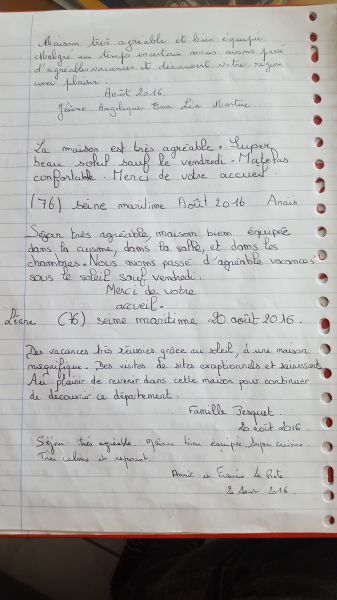 Maison très agréable et bien équipée
Malgré un temps incertain nous avons passé
d'agréables vacances et decouvert votre region
avec plaisir.
Août 2016.
Jérôme Angélique Eva Léa Martine
La maison est très agréable. Super
beau soleil sauf le vendredi. Matelas
confortable. Merci de votre accueil
(76) seine maritime Août 2016 Anaïs
Séjour très agréable, maison bien équipée
dans la cuisine, dans la salle, et dans les
chambres. Nous avons passé d'agréable vacances
sous le soleil sauf vendredi.
Merci de votre
accueil.
Liane (76) seine maritime 20 août 2016.
Des vacances très réussies grâce au soleil, à une maison
magnifique. Des visites de sites exceptionnels et saisissant.
Au plaisir de revenir dans cette maison pour continuer
de decouvrir ce département.
Famille
20 août 2016.
Séjour très agréable. Maison bien équipée, super cuisine.
Très calme et reposant.
Annie et Francis
2 Août 2016